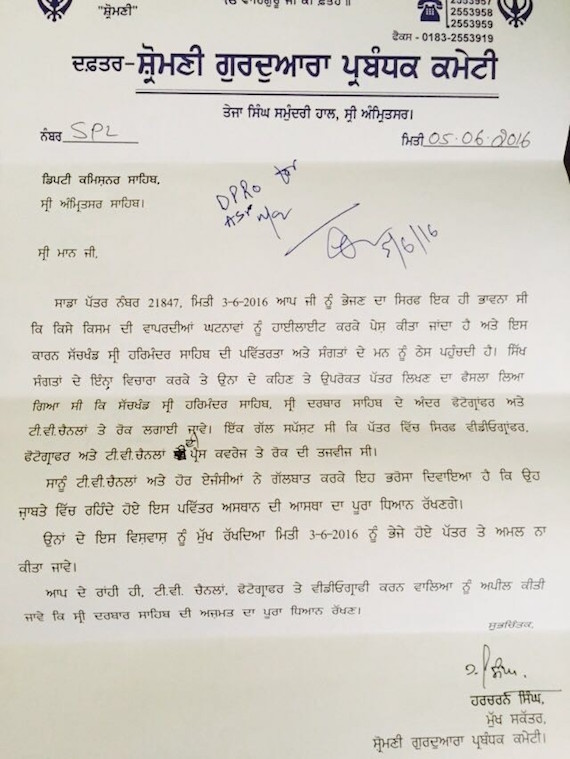 "ਸ਼੍ਰੋਮਣੀ"
ੴ ਵਾਹਿਗੁਰੂ ਜੀ ਕੀ ਫ਼ਤਹਿ ॥
2553957
2553958
2553959
ਫੈਕਸ - 0183-2553919
ਦਫ਼ਤਰ-ਸ਼੍ਰੋਮਣੀ ਗੁਰਦੁਆਰਾ ਪ੍ਰਬੰਧਕ ਕਮੇਟੀ
ਤੇਜਾ ਸਿੰਘ ਸਮੁੰਦਰੀ ਹਾਲ, ਸ੍ਰੀ ਅੰਮ੍ਰਿਤਸਰ।
ਨੰਬਰ SPL ਮਿਤੀ 05.06.2016
ਡਿਪਟੀ ਕਮਿਸ਼ਨਰ ਸਾਹਿਬ,
ਸ੍ਰੀ ਅੰਮ੍ਰਿਤਸਰ ਸਾਹਿਬ।
DPRO for
5/6/16
ਸ੍ਰੀ ਮਾਨ ਜੀ,
ਸਾਡਾ ਪੱਤਰ ਨੰਬਰ 21847, ਮਿਤੀ 3-6-2016 ਆਪ ਜੀ ਨੂੰ ਭੇਜਣ ਦਾ ਸਿਰਫ ਇਕ ਹੀ ਭਾਵਨਾ ਸੀ
ਕਿ ਕਿਸੇ ਕਿਸਮ ਦੀ ਵਾਪਰਦੀਆਂ ਘਟਨਾਵਾਂ ਨੂੰ ਹਾਈਲਾਈਟ ਕਰਕੇ ਪੇਸ਼ ਕੀਤਾ ਜਾਂਦਾ ਹੈ ਅਤੇ ਇਸ
ਕਾਰਨ ਸੱਚਖੰਡ ਸ੍ਰੀ ਹਰਿਮੰਦਰ ਸਾਹਿਬ ਦੀ ਪਵਿੱਤਰਤਾ ਅਤੇ ਸੰਗਤਾਂ ਦੇ ਮਨ ਨੂੰ ਠੇਸ ਪਹੁੰਚਦੀ ਹੈ। ਸਿੱਖ
ਸੰਗਤਾਂ ਦੇ ਇੰਨ੍ਹਾ ਵਿਚਾਰਾ ਕਰਕੇ ਤੇ ਉਨਾ ਦੇ ਕਹਿਣ ਤੇ ਉਪਰੋਕਤ ਪੱਤਰ ਲਿਖਣ ਦਾ ਫੈਸਲਾ ਲਿਆ
ਗਿਆ ਸੀ ਕਿ ਸੱਚਖੰਡ ਸ੍ਰੀ ਹਰਿਮੰਦਰ ਸਾਹਿਬ, ਸ੍ਰੀ ਦਰਬਾਰ ਸਾਹਿਬ ਦੇ ਅੰਦਰ ਫੋਟੋਗ੍ਰਾਫਰ ਅਤੇ
ਟੀ.ਵੀ.ਚੈਨਲਾਂ ਤੇ ਰੋਕ ਲਗਾਈ ਜਾਵੇ। ਇੱਕ ਗੱਲ ਸਪੱਸ਼ਟ ਸੀ ਕਿ ਪੱਤਰ ਵਿੱਚ ਸਿਰਫ ਵੀਡੀਓਗ੍ਰਾਫਰ,
ਫੋਟੋਗ੍ਰਾਫਰ ਅਤੇ ਟੀ.ਵੀ.ਚੈਨਲਾਂ ਦੀ ਪ੍ਰੈਸ ਕਵਰੇਜ ਤੇ ਰੋਕ ਦੀ ਤਜਵੀਜ ਸੀ।
ਸਾਨੂੰ ਟੀ.ਵੀ.ਚੈਨਲਾਂ ਅਤੇ ਹੋਰ ਏਜੰਸੀਆਂ ਨੇ ਗੱਲਬਾਤ ਕਰਕੇ ਇਹ ਭਰੋਸਾ ਦਿਵਾਇਆ ਹੈ ਕਿ ਉਹ
ਜ਼ਾਬਤੇ ਵਿੱਚ ਰਹਿੰਦੇ ਹੋਏ ਇਸ ਪਵਿੱਤਰ ਅਸਥਾਨ ਦੀ ਆਸਥਾ ਦਾ ਪੂਰਾ ਧਿਆਨ ਰੱਖਣਗੇ।
ਉਨਾਂ ਦੇ ਇਸ ਵਿਸ਼ਵਾਸ਼ ਨੂੰ ਮੁੱਖ ਰੱਖਦਿਆ ਮਿਤੀ 3-6-2016 ਨੂੰ ਭੇਜੇ ਹੋਏ ਪੱਤਰ ਤੇ ਅਮਲ ਨਾ
ਕੀਤਾ ਜਾਵੇ।
ਆਪ ਦੇ ਰਾਂਹੀ ਹੀ, ਟੀ.ਵੀ. ਚੈਨਲਾਂ, ਫੋਟੋਗ੍ਰਾਫਰ ਤੇ ਵੀਡੀਓਗ੍ਰਾਫੀ ਕਰਨ ਵਾਲਿਆ ਨੂੰ ਅਪੀਲ ਕੀਤੀ
ਜਾਵੇ ਕਿ ਸ੍ਰੀ ਦਰਬਾਰ ਸਾਹਿਬ ਦੀ ਅਜ਼ਮਤ ਦਾ ਪੂਰਾ ਧਿਆਨ ਰੱਖਣ।
ਸ਼ੁਭਚਿੰਤਕ,
ਹਰਚਰਨ ਸਿੰਘ,
ਮੁੱਖ ਸਕੱਤਰ,
ਸ਼੍ਰੋਮਣੀ ਗੁਰਦੁਆਰਾ ਪ੍ਰਬੰਧਕ ਕਮੇਟੀ।